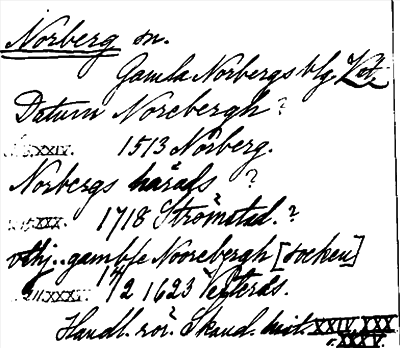 Norberg sn.
Gamla Norbergs blg.
Datum Norebergh?
XXIV. 1513 Norberg.
Norbergs härads?
XX. 1718 Strömstad.?
Noorebergh [socken]
XXXI. 1623 Vesterås.
Handl. rör. Skand. hist. XXIV, XXX
o. XXXV.